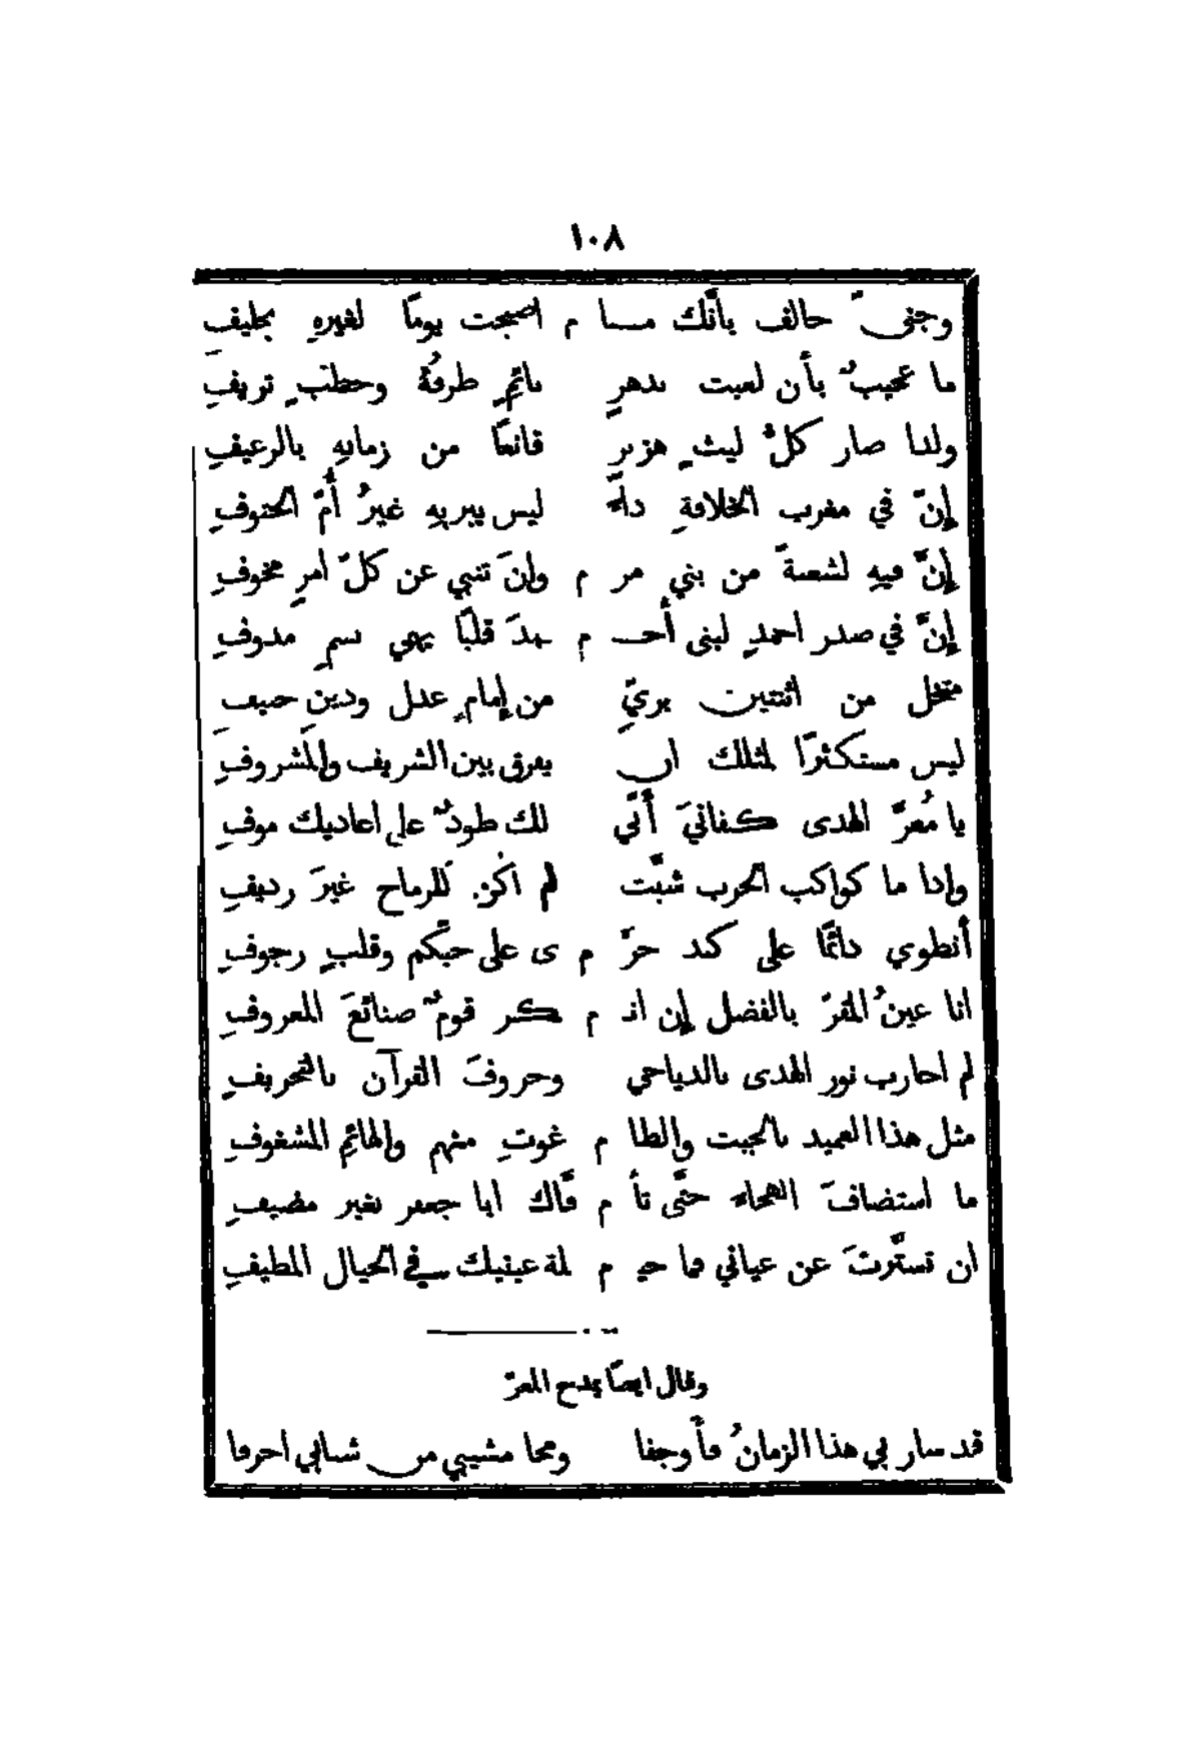 ١٠٨
وجنى حالف بأنّك مــا م اصبحت يومًا لغيرهِ بحليفِ
ما عجيبٌ بأن لعبت بدهرٍ نائمٍ طرفُهُ وحطبٍ تريفِ
ولذا صار كلُّ ليثٍ هزبرٍ قانعًا من زمانهِ بالرغيفِ
إنّ في مغرب الخلافةِ داءً ليس يبريهِ غيرُ أُمّ الحتوفِ
إنَّ فيهِ لشعبةً من بني مر م وانَ تنبي عن كلّ امرٍ مخوفِ
إنَّ في صدر احمدٍ لبني أحــ م ـمدَ قلبًا يهمي بسمٍ مدوفِ
متخل من اثنتين بريّ من إمامٍ عدل ودينٍ حنيفِ
ليس مستكثرًا لمثلك ان يفرق بين الشريف والمشروفِ
يا مُعزَّ الهدى كفانيَ أنّي لك طودٌ على اعاديك موفِ
وإذا ما كواكب الحرب شبّت لم اكن للرماح غيرَ رديفِ
أنطوي دائمًا على كبد حرّ م ى على حبّكم وقلبٍ رجوفِ
انا عينُ المقرّ بالفضل إن انـ م ـكر قومٌ صنائعَ المعروفِ
لم احارب نور الهدى بالدياجي وحروفَ القرآن بالتحريفِ
مثل هذا العميد بالجبت والطا م غوتِ منهم والهائمِ المشغوفِ
ما استضافَ الهجاء حتّى تأ م فّاك ابا جعفر بغير مضيفِ
ان تستّرتَ عن عياني فما حيـ م ـلة عينيك في الخيال المطيفِ
وقال ايضًا يمدح المعزّ
قد سار بي هذا الزمانُ فأوجفا ومحا مشيبي من شبابي احرفا